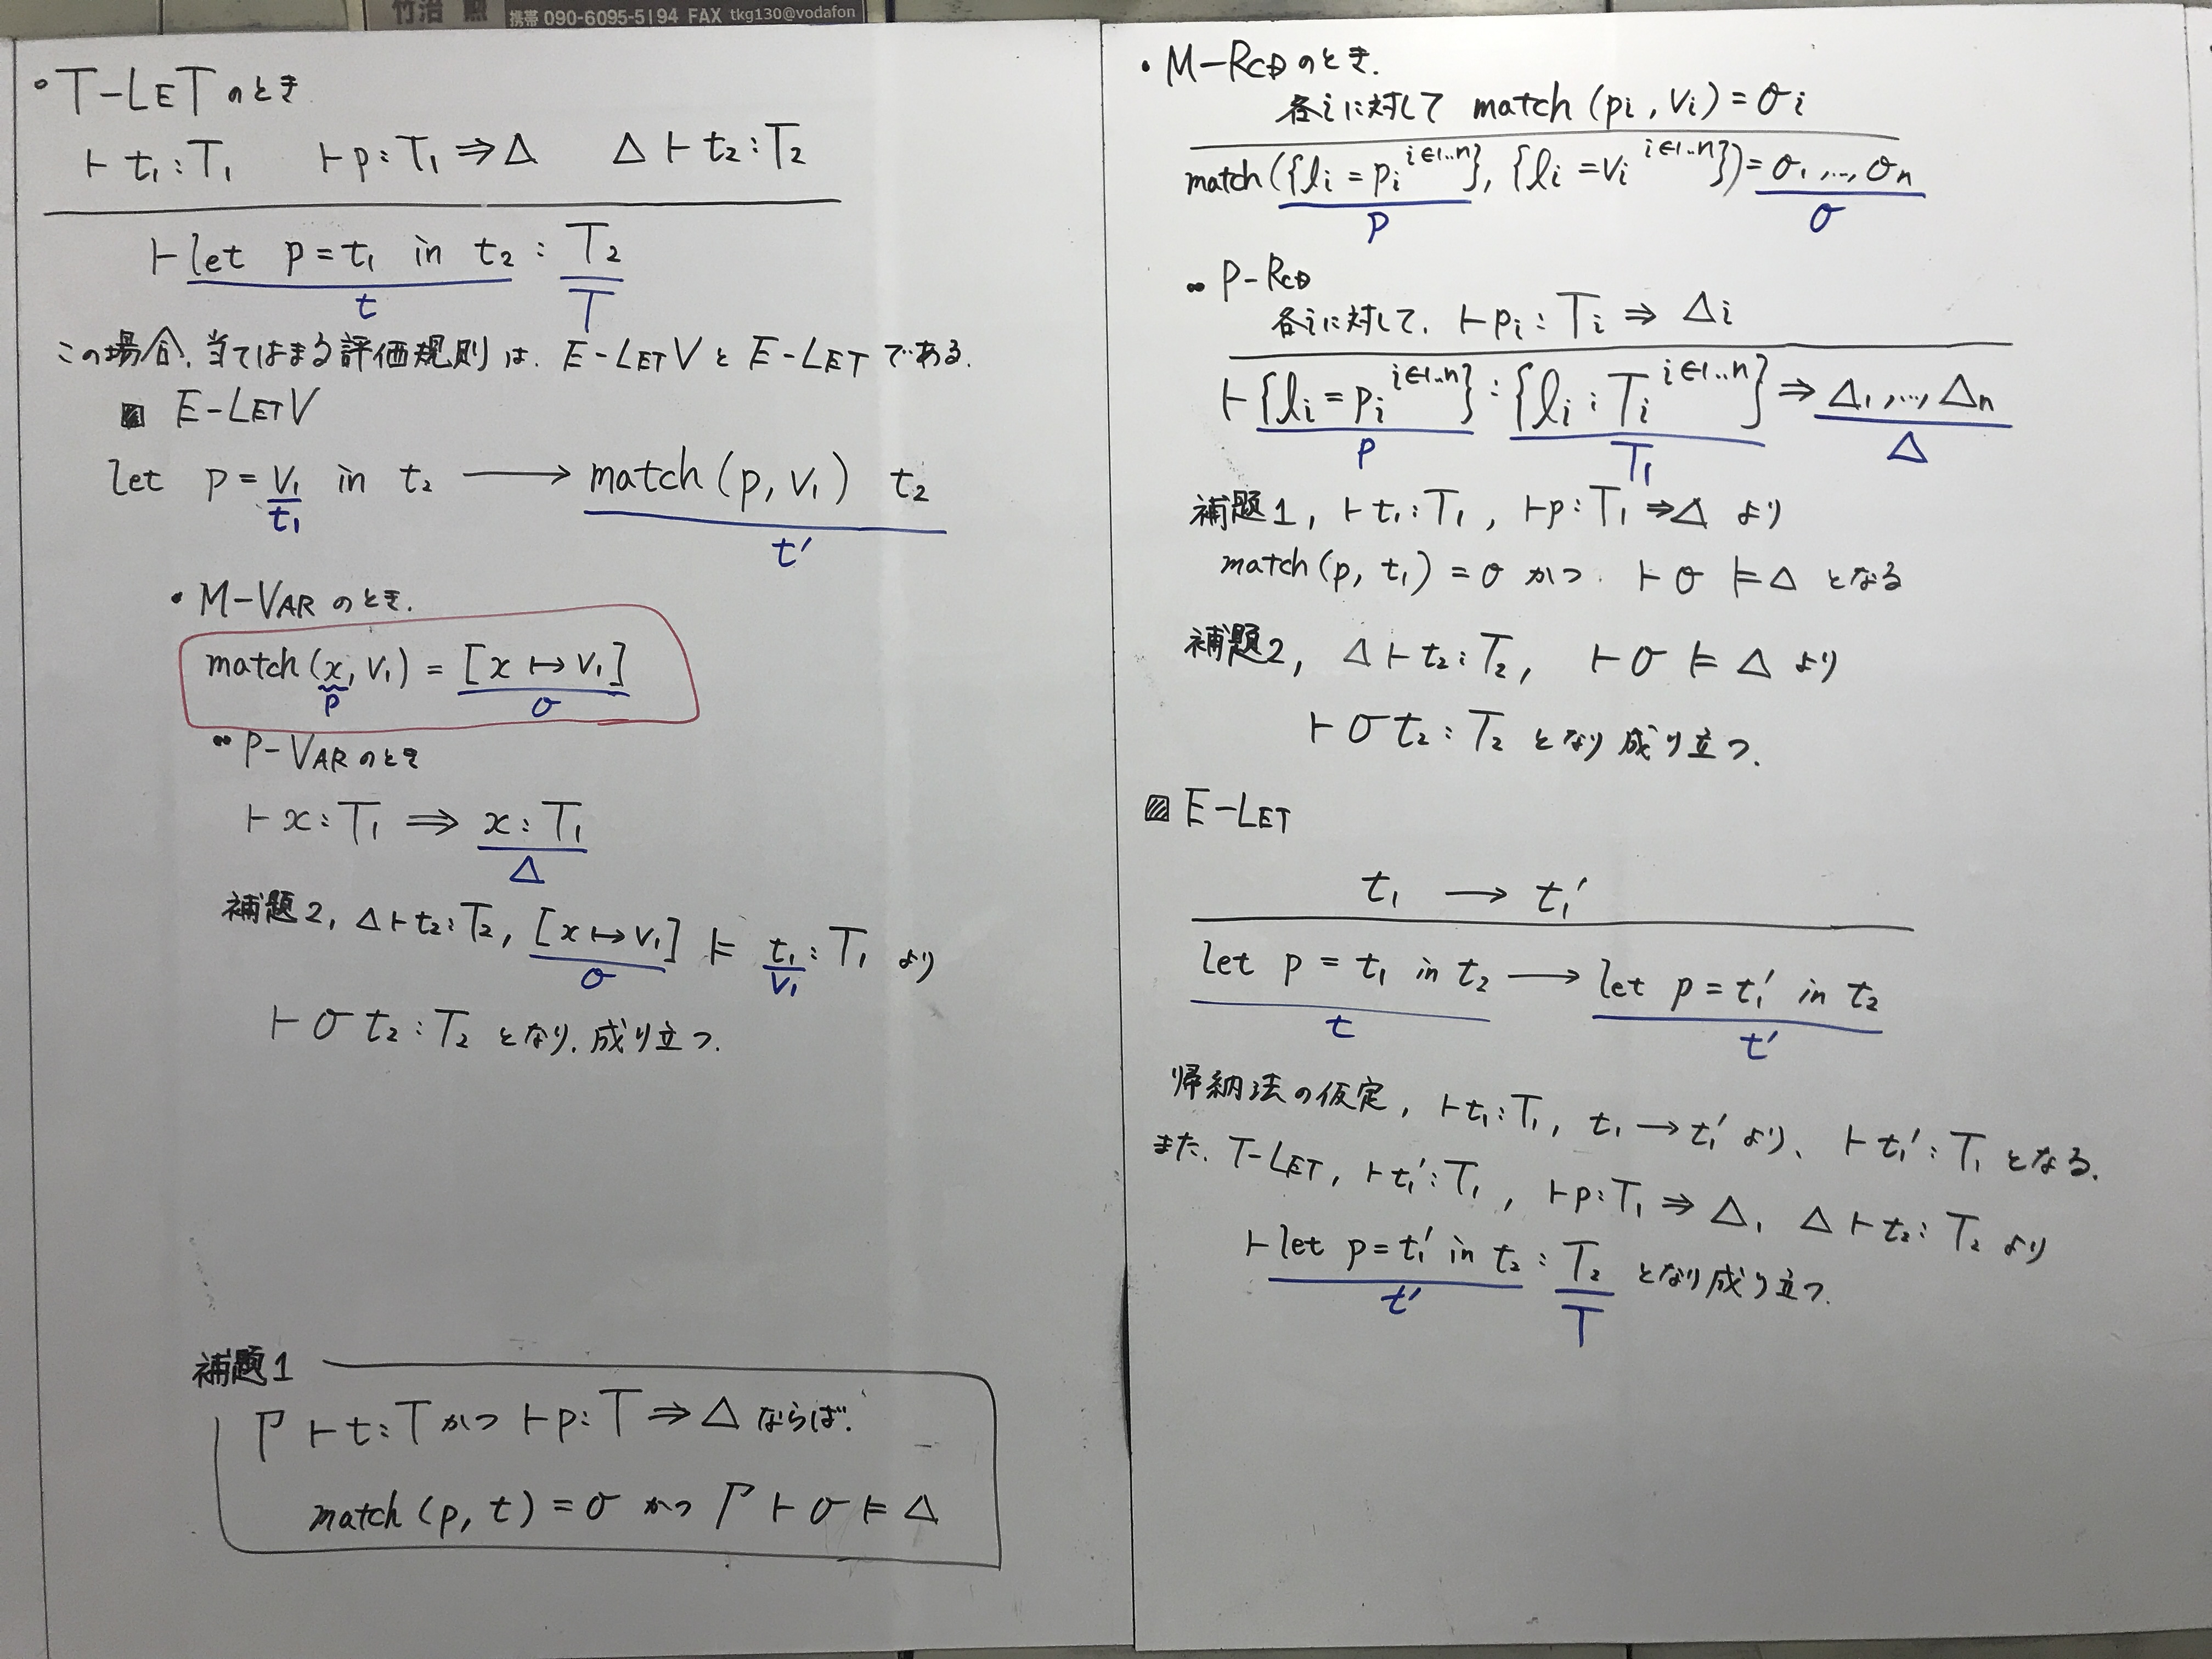 竹治
携帯 090-6095-5194 FAX tkg130@vodafon
• T-LETのとき
⊢ t₁:T₁ ⊢ p:T₁ ⇒ Δ Δ ⊢ t₂:T₂
⊢ let p = t₁ in t₂ : T₂
t T
この場合、当てはまる評価規則は、E-LETVとE-LETである.
▨ E-LETV
let p = v₁ in t₂ ⟶ match(p, v₁) t₂
t₁ t'
• M-VARのとき.
match(x, v₁) = [x ↦ v₁]
p σ
•• P-VARのとき
⊢ x:T₁ ⇒ x:T₁
Δ
補題2, Δ ⊢ t₂:T₂, [x ↦ v₁] ⊨ t₁:T₁ より
σ v₁
⊢ σ t₂:T₂ となり、成り立つ.
補題1
Γ ⊢ t:T かつ ⊢ p:T ⇒ Δ ならば.
match(p, t) = σ かつ Γ ⊢ σ ⊨ Δ
• M-RCDのとき.
各iに対して match(pi, vi) = σi
match({li = pi i∈1..n}, {li = vi i∈1..n}) = σ₁,..., σn
p σ
•• P-RCD
各iに対して. ⊢ pi:Ti ⇒ Δi
⊢ {li = pi i∈1..n} : {li : Ti i∈1..n} ⇒ Δ₁,..., Δn
p T₁ Δ
補題1, ⊢ t₁:T₁, ⊢ p:T₁ ⇒ Δ より
match(p, t₁) = σ かつ. ⊢ σ ⊨ Δ となる
補題2, Δ ⊢ t₂:T₂, ⊢ σ ⊨ Δ より
⊢ σ t₂:T₂ となり成り立つ.
▨ E-LET
t₁ ⟶ t₁'
let p = t₁ in t₂ ⟶ let p = t₁' in t₂
t t'
帰納法の仮定, ⊢ t₁:T₁, t₁ → t₁' より、⊢ t₁':T₁ となる.
また. T-LET, ⊢ t₁':T₁, ⊢ p:T₁ ⇒ Δ, Δ ⊢ t₂:T₂ より
⊢ let p = t₁' in t₂ : T₂ となり成り立つ.
t' T